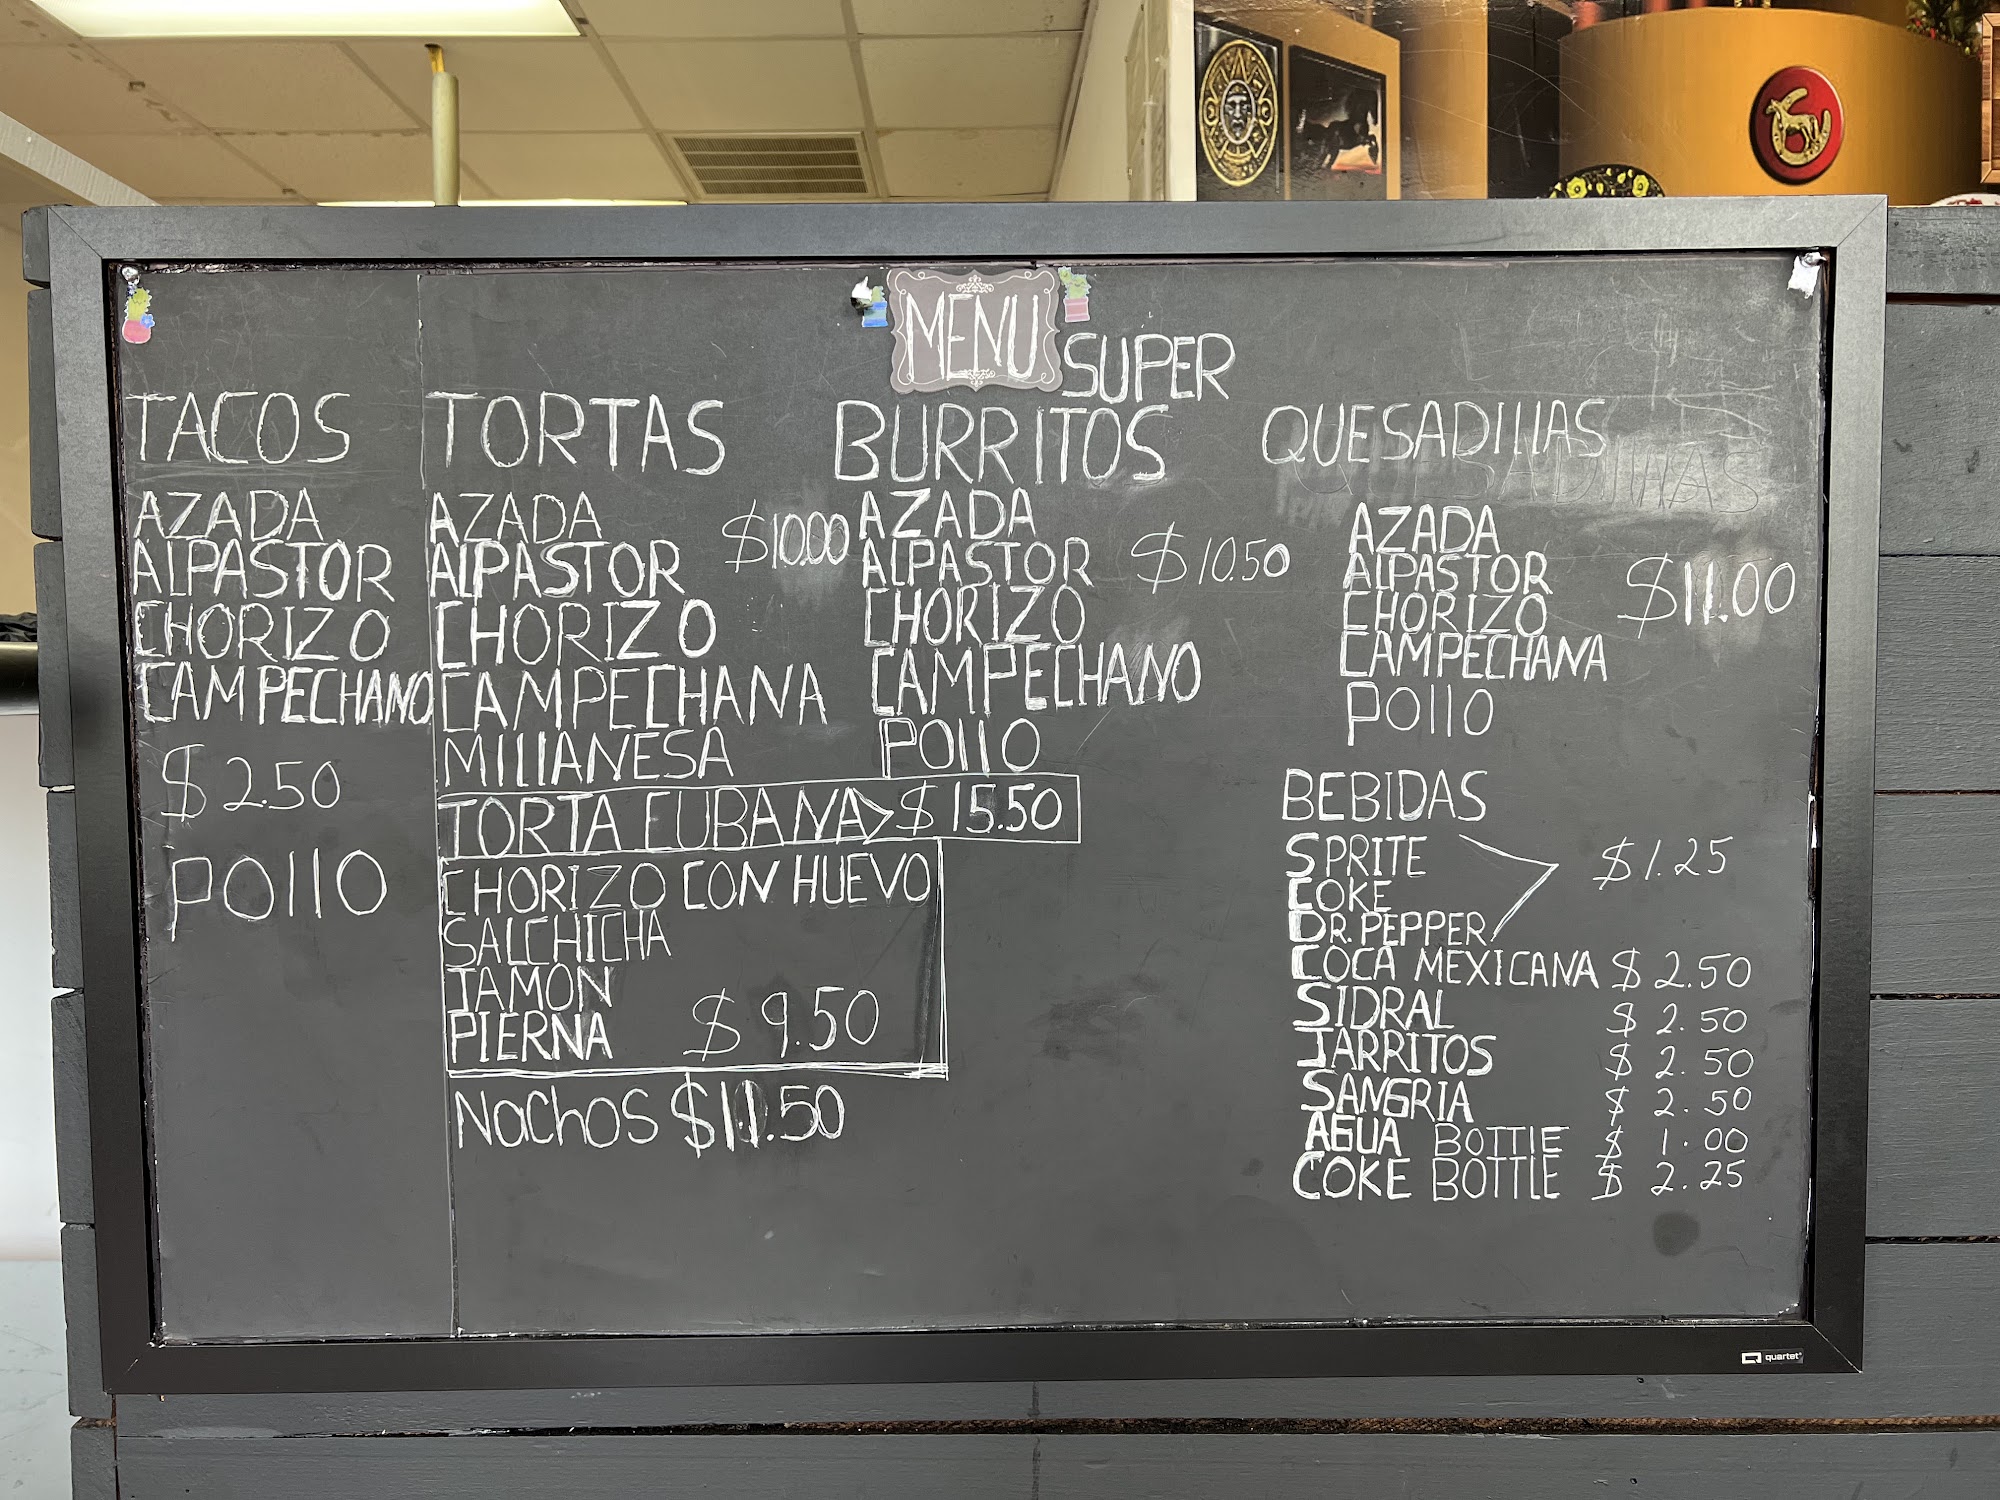 MENU
TACOS
AZADA
ALPASTOR
CHORIZO
CAMPECHANO
$2.50
POllO
TORTAS
AZADA
ALPASTOR
$10.00
CHORIZO
CAMPECHANA
MIlIANESA
TORTA CUBANA > $15.50
CHORIZO CON HUEVO
SALCHICHA
JAMON
PIERNA $9.50
NachOS $11.50
SUPER
BURRITOS
AZADA
ALPASTOR $10.50
CHORIZO
CAMPECHANO
POllO
QUESADIllAS
QUESADIllAS
AZADA
AlPASTOR $11.00
CHORIZO
CAMPECHANA
POllO
BEBIDAS
SPRITE $1.25
COKE
DR. PEPPER
COCA MEXICANA $2.50
SIDRAL $2.50
JARRITOS $2.50
SANGRIA $2.50
AGUA BOTTlE $1.00
COKE BOTTLE $2.25
quartet